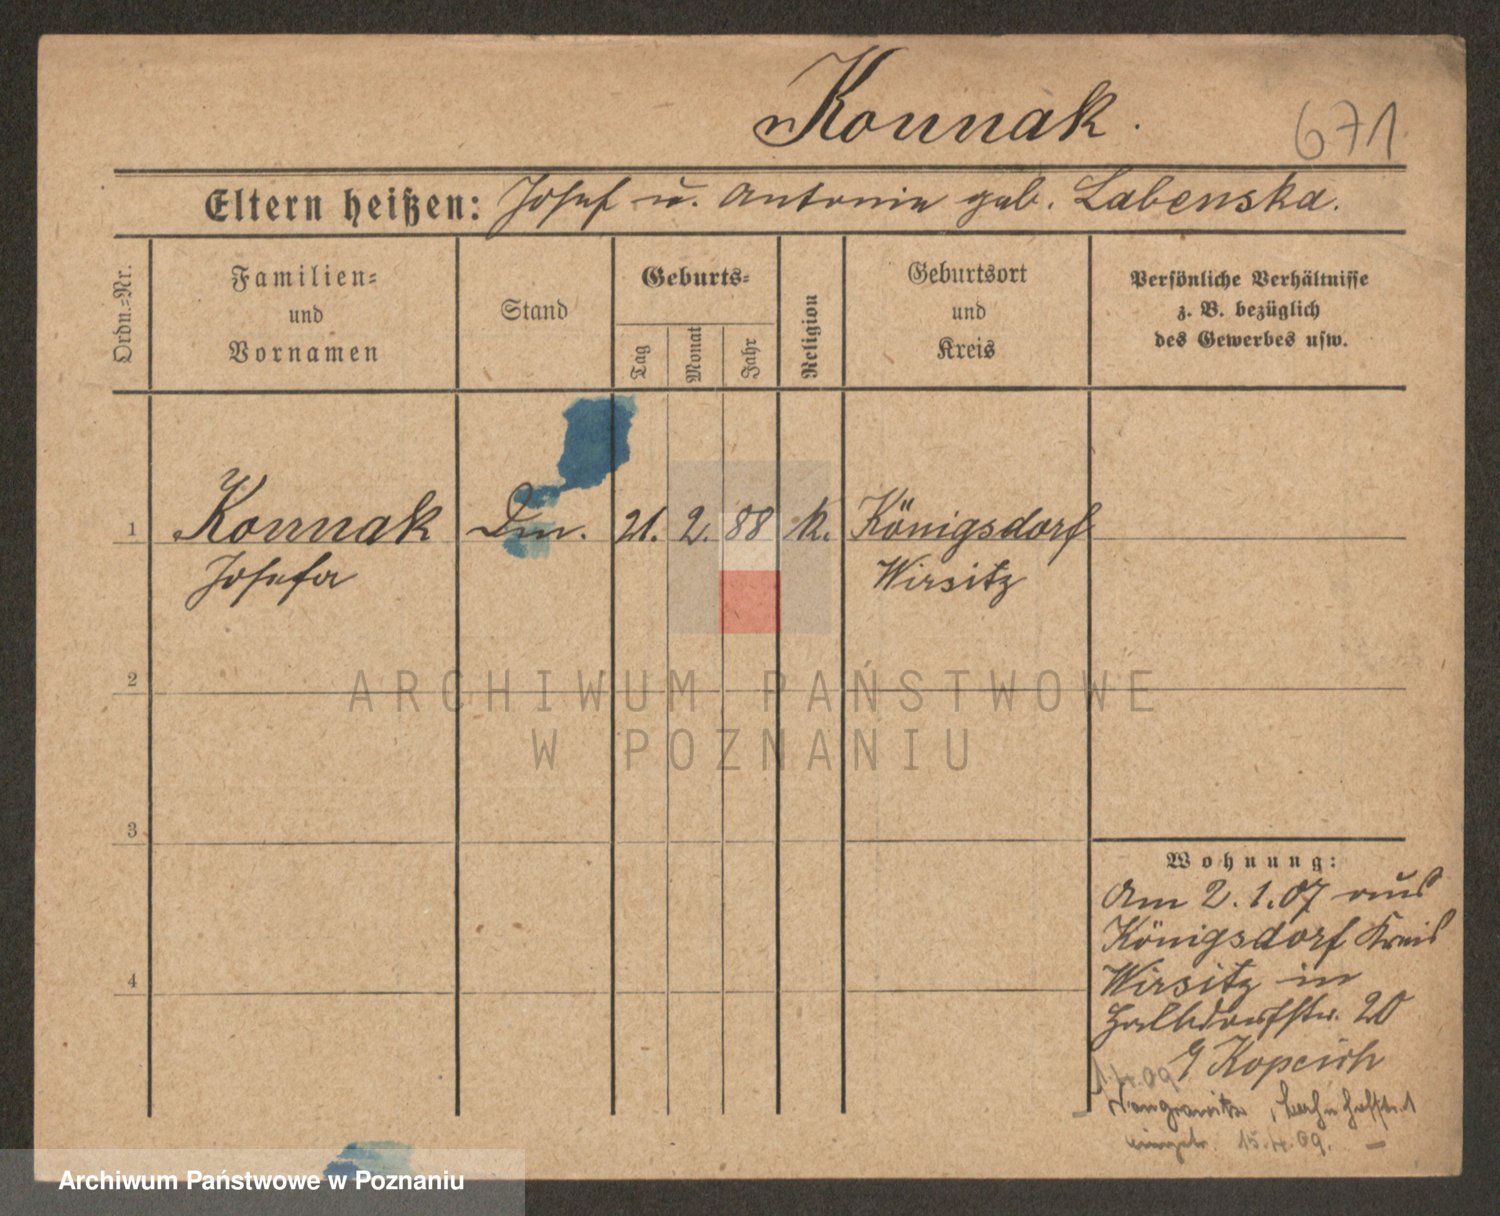 Konnak.
671
Eltern heißen: Josef u. Antonie geb. Labenska.
Ordn.=Nr.
Familien=
und
Vornamen
Stand
Geburts=
Tag
Monat
Jahr
Religion
Geburtsort
und
Kreis
Persönliche Verhältnisse
z. B. bezüglich
des Gewerbes usw.
1
Konnak Dm. 21. 2. 88 k. Königsdorf
Josefa Wirsitz
2
ARCHIWUM PAŃSTWOWE
W POZNANIU
3
Wohnung:
Am 2.1.07 aus
Königsdorf Kreis
4
Wirsitz in
Halbdorfstr. 20
b/ Kopcich
1.4.09
Wongrowitz
eingetr. 15.4.09. —
Archiwum Państwowe w Poznaniu